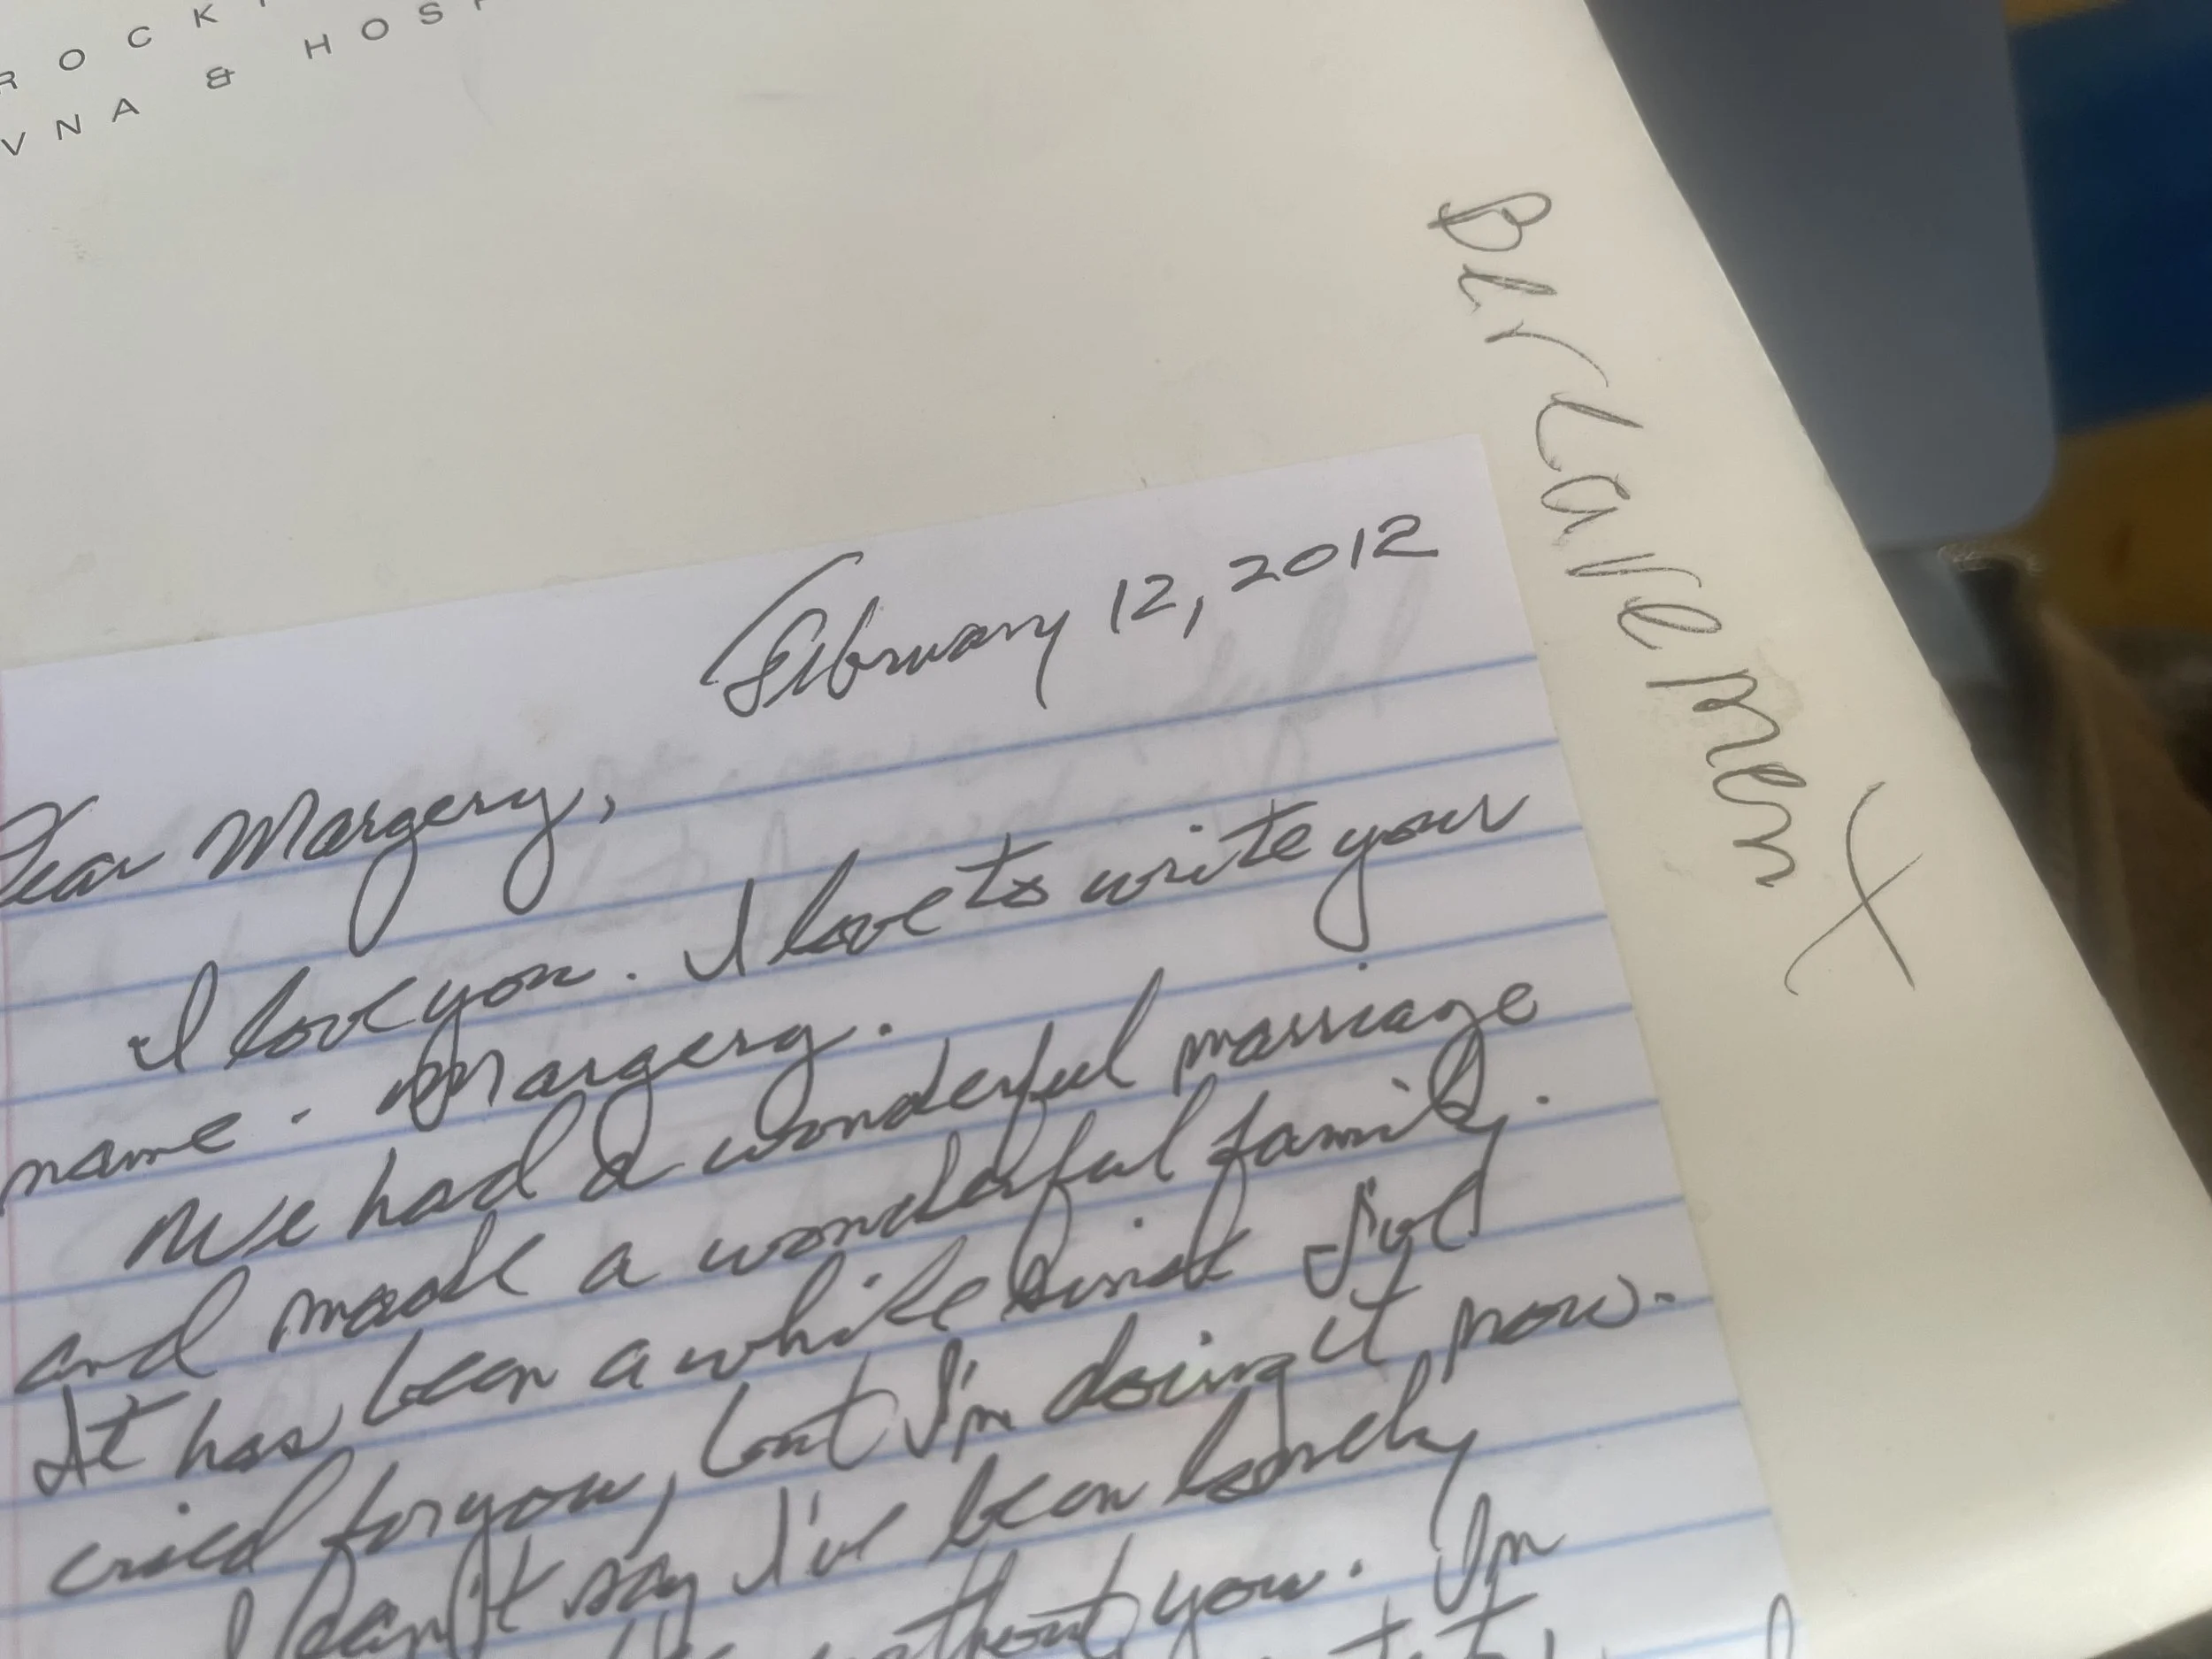 ROCK
VNA & HOSP
Bereavement
February 12, 2012
Dear Margery,
I love you. I love to write your
name. Margery.
We had a wonderful marriage
and made a wonderful family.
It has been a while since I've
cried for you, but I'm doing it now.
I can't say I've been lonely
without you. In